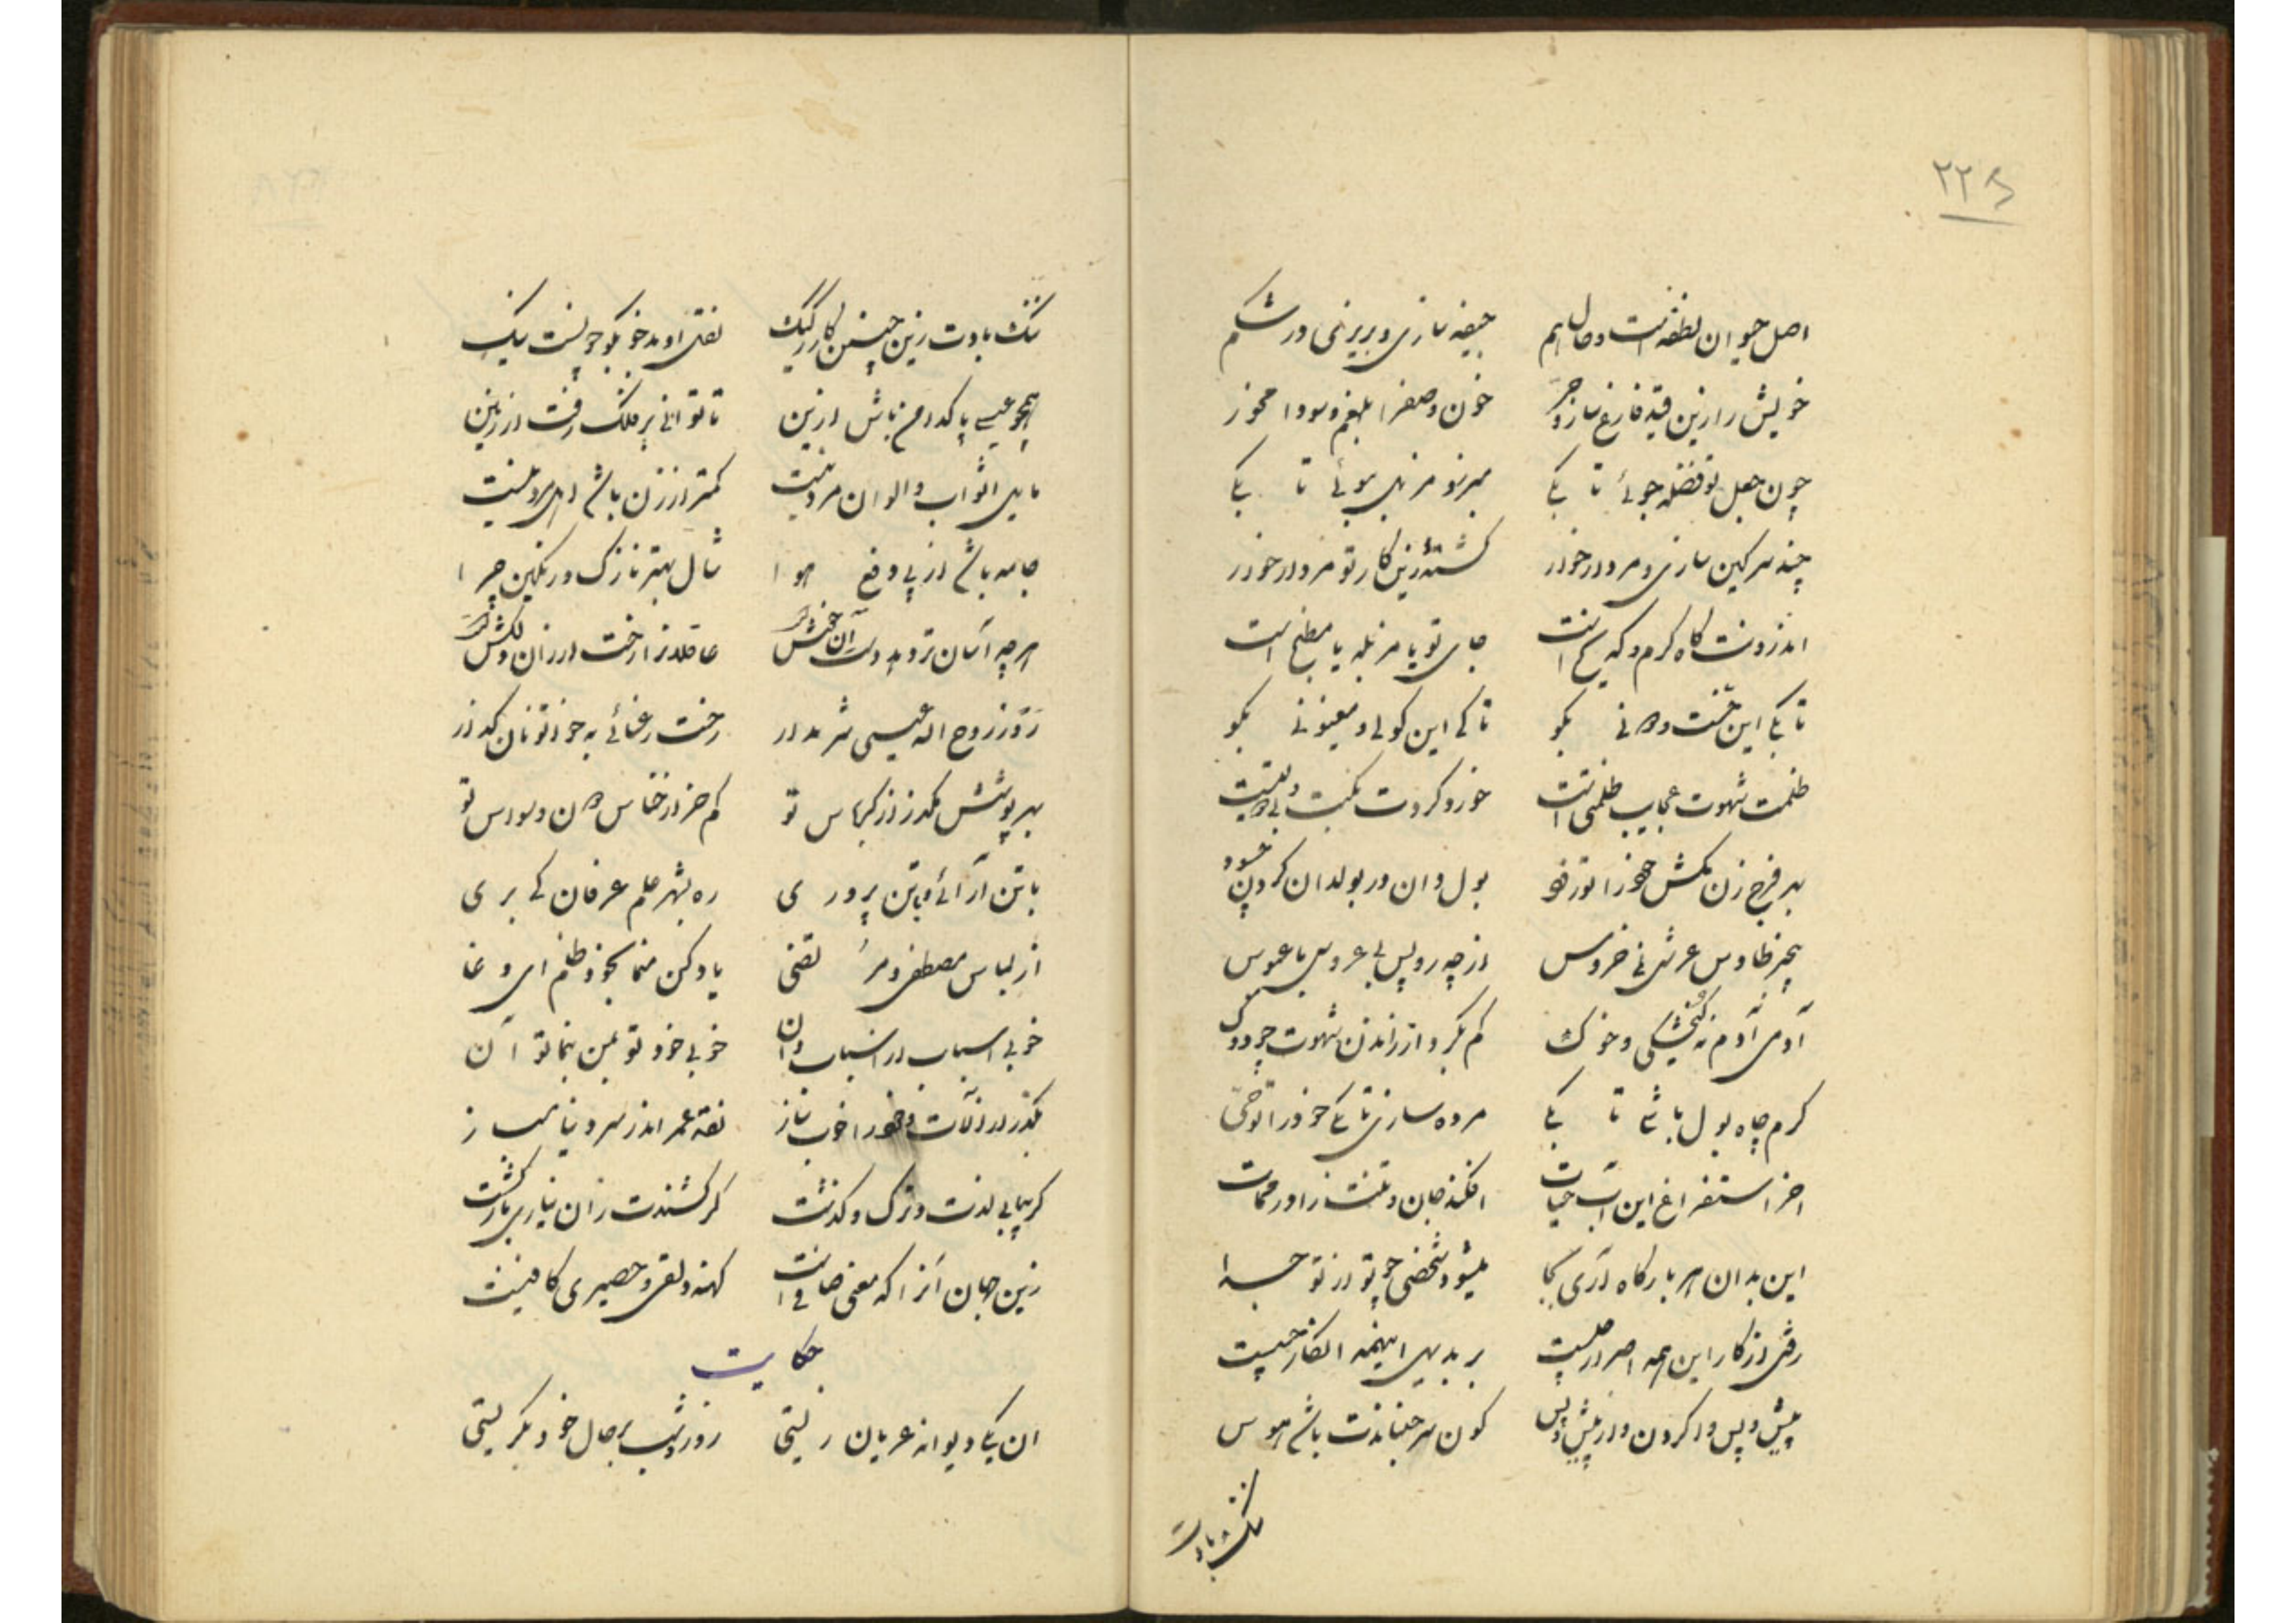 ۲۲۵
اصل حیوان نطفه است و حال هم جیفه سازی و بریزنی در شکم
خویش را زین قید فارغ ساز و حر خون و صفرا بلغم و سودا مخور
چون جعل تو فضله جوئی تا بکی مبرز و مزبل بپوئی تا بکی
چند سرکین سازی و مردار خوار کشته زین کار تو مردار خوار
اندرونت کاه کرم و که است جای تو یا مزبله یا مطبخ است
تا بکی این بکو تا کی این کولی و مغبونی بکو
ظلمت شهوت عجایب ظلمتی است خورد و کردت نکبت و
بهر فرج زن مکش خود را بول دان در بولدان کردن چه سود
بچه طاوس عرشی نی خروس از چه رو پس بی عروسی با عبوس
آدمی آدم نه کنجشکی و خوک کم نکرد از راندن شهوت
کرم چاه بول باشی تا بکی مرده سازی تا بکی خود را تو حی
اخر استفراغ این آب حیات افکند جان و تنت را در ممات
این بدان هر بار کاه آری بجا میشود شخصی چو تو از تو جدا
رفتی از کار این همه اصرار چیست بر بدیهی اینهمه انکار چیست
پیش و پس واکردن و از پیش و پس کون سر جنباندت باشی هوس
ننک بادت
ننک بادت زین چنین کار رکیک نقل او بد خو بکو چونست نیک
همچو عیسی پاکدامن باش ازین تا توانی بر فلک رفت از زمین
مایل اثواب و الوان مرد نیست کمتر از زن باشی اهل درد نیست
جامه باشد از پی دفع هوا شال بهتر نازک و رنکین چرا
هرچه آسان تر دهد دست آن خوشتر عاقلانرا رخت ارزان دلکش
رو ز روح اله عیسی شرم دار رخت رعنائی به خواتونان کذار
بهر پوشش مکذرد از کرباس تو کم خر از خناس هان وسواس تو
با تن آرائی و با تن پروری ره بشهر علم عرفان کی بری
از لباس مصطفی و مرتضی یاد کن منما بخود ظلم ای دغا
خوبی اسباب در اسباب دان خوبی خود تو بمن بنما تو آن
بکذر از آلات و خود را خوب ساز نقد عمر اندر سر دنیا مباز
کر بیابی لذت و ترک و کذشت کر کشندت زان نیاری بازکشت
زین جهان آنرا که مغز صافی است کهنه دلقی و حصیری کافیست
حکایت
ان یکی دیوانه عریان زیستی روز و شب بر حال خود بکریستی